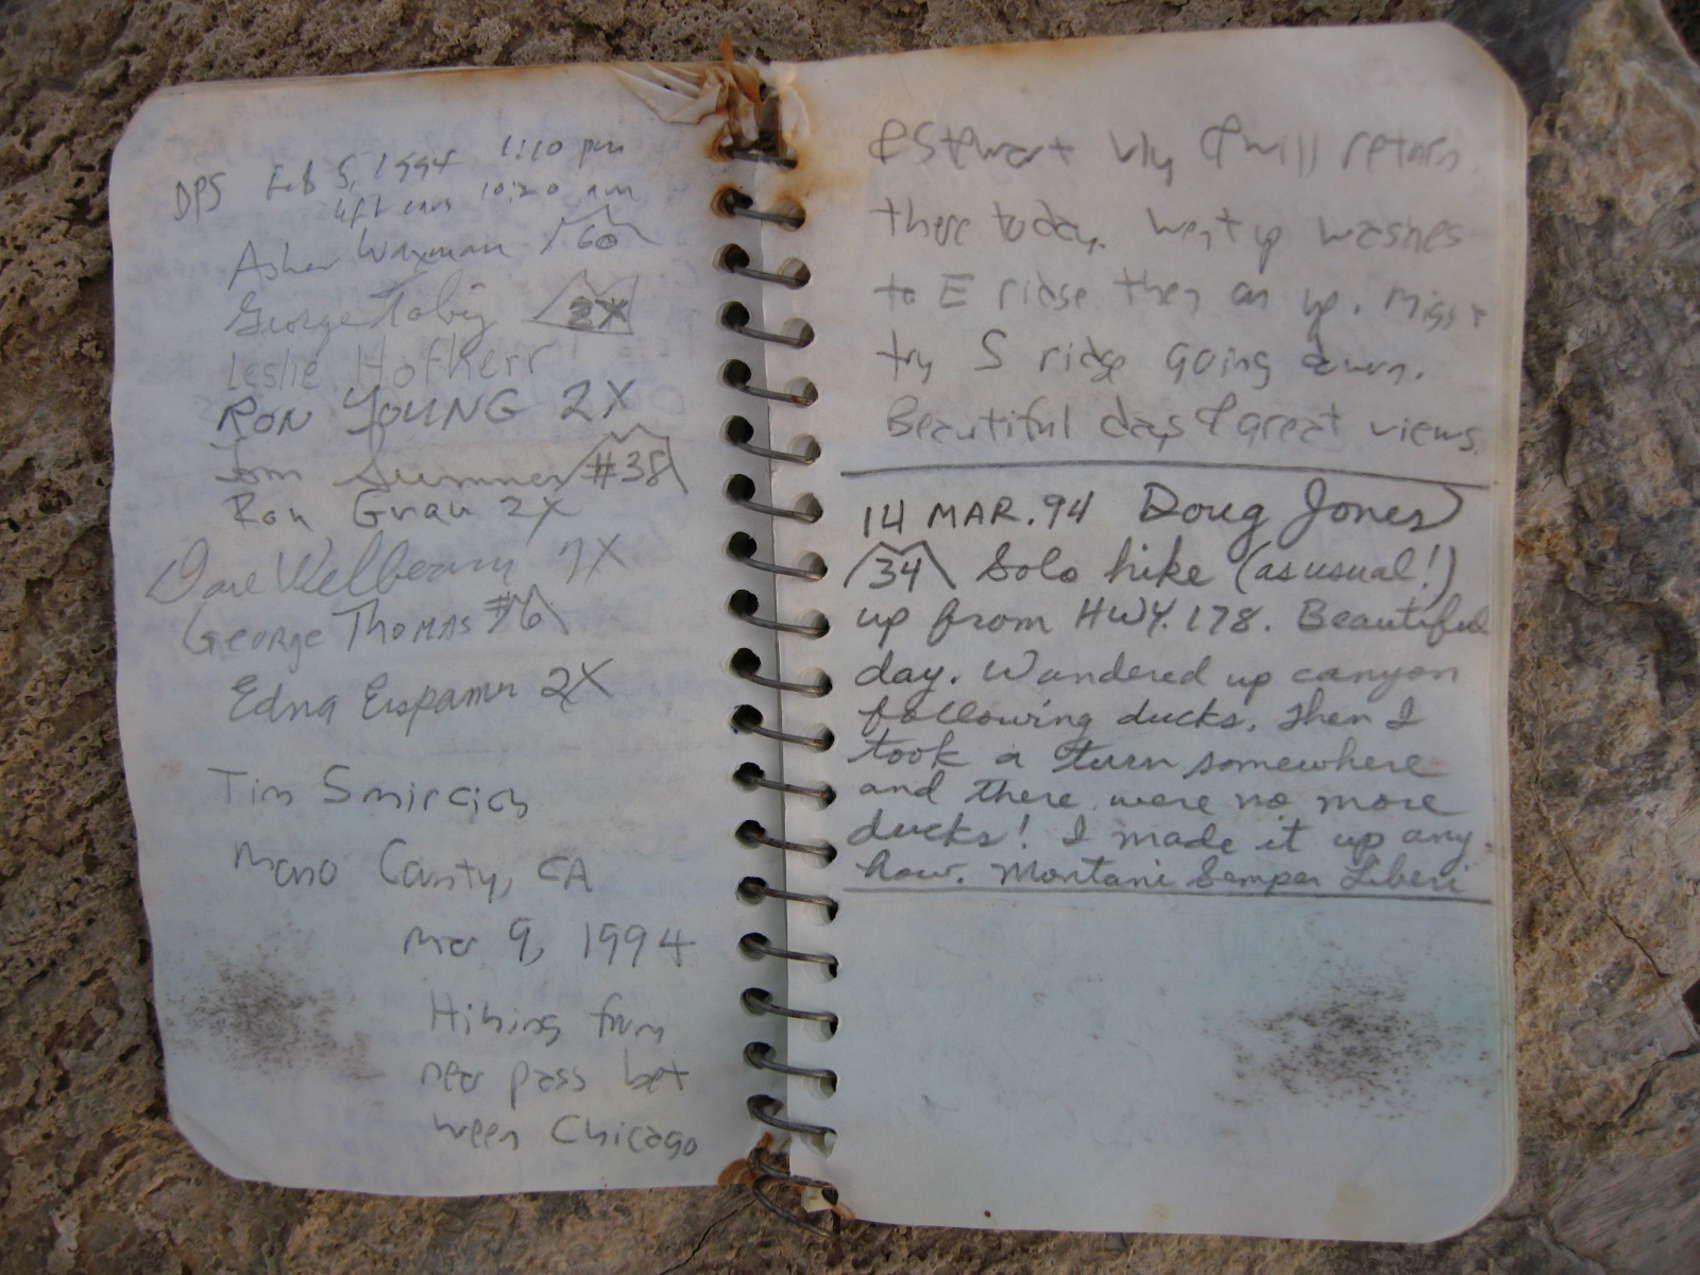 DPS Feb 5, 1994 1:10 pm
left cars 10:20 am
Asher Waxman 60
George Toby 2X
Leslie Hofherr
RON YOUNG 2X
Tom Sumner #38
Ron Grau 2X
Dave Welbourn 7X
GEORGE THOMAS #6
Edna Erspamer 2X
Tim
Mono County, CA
Mar 9, 1994
Hiking from
near pass bet
ween Chicago
& Stewart Vly & will return
there today. Went up washes
to E ridge then on up. Might
try S ridge going down.
Beautiful day & great views.
14 MAR. 94 Doug Jones
34 Solo hike (as usual!)
up from HWY. 178. Beautiful
day. Wandered up canyon
following ducks. Then I
took a turn somewhere
and there were no more
ducks! I made it up any
how. Montani Semper Liberi